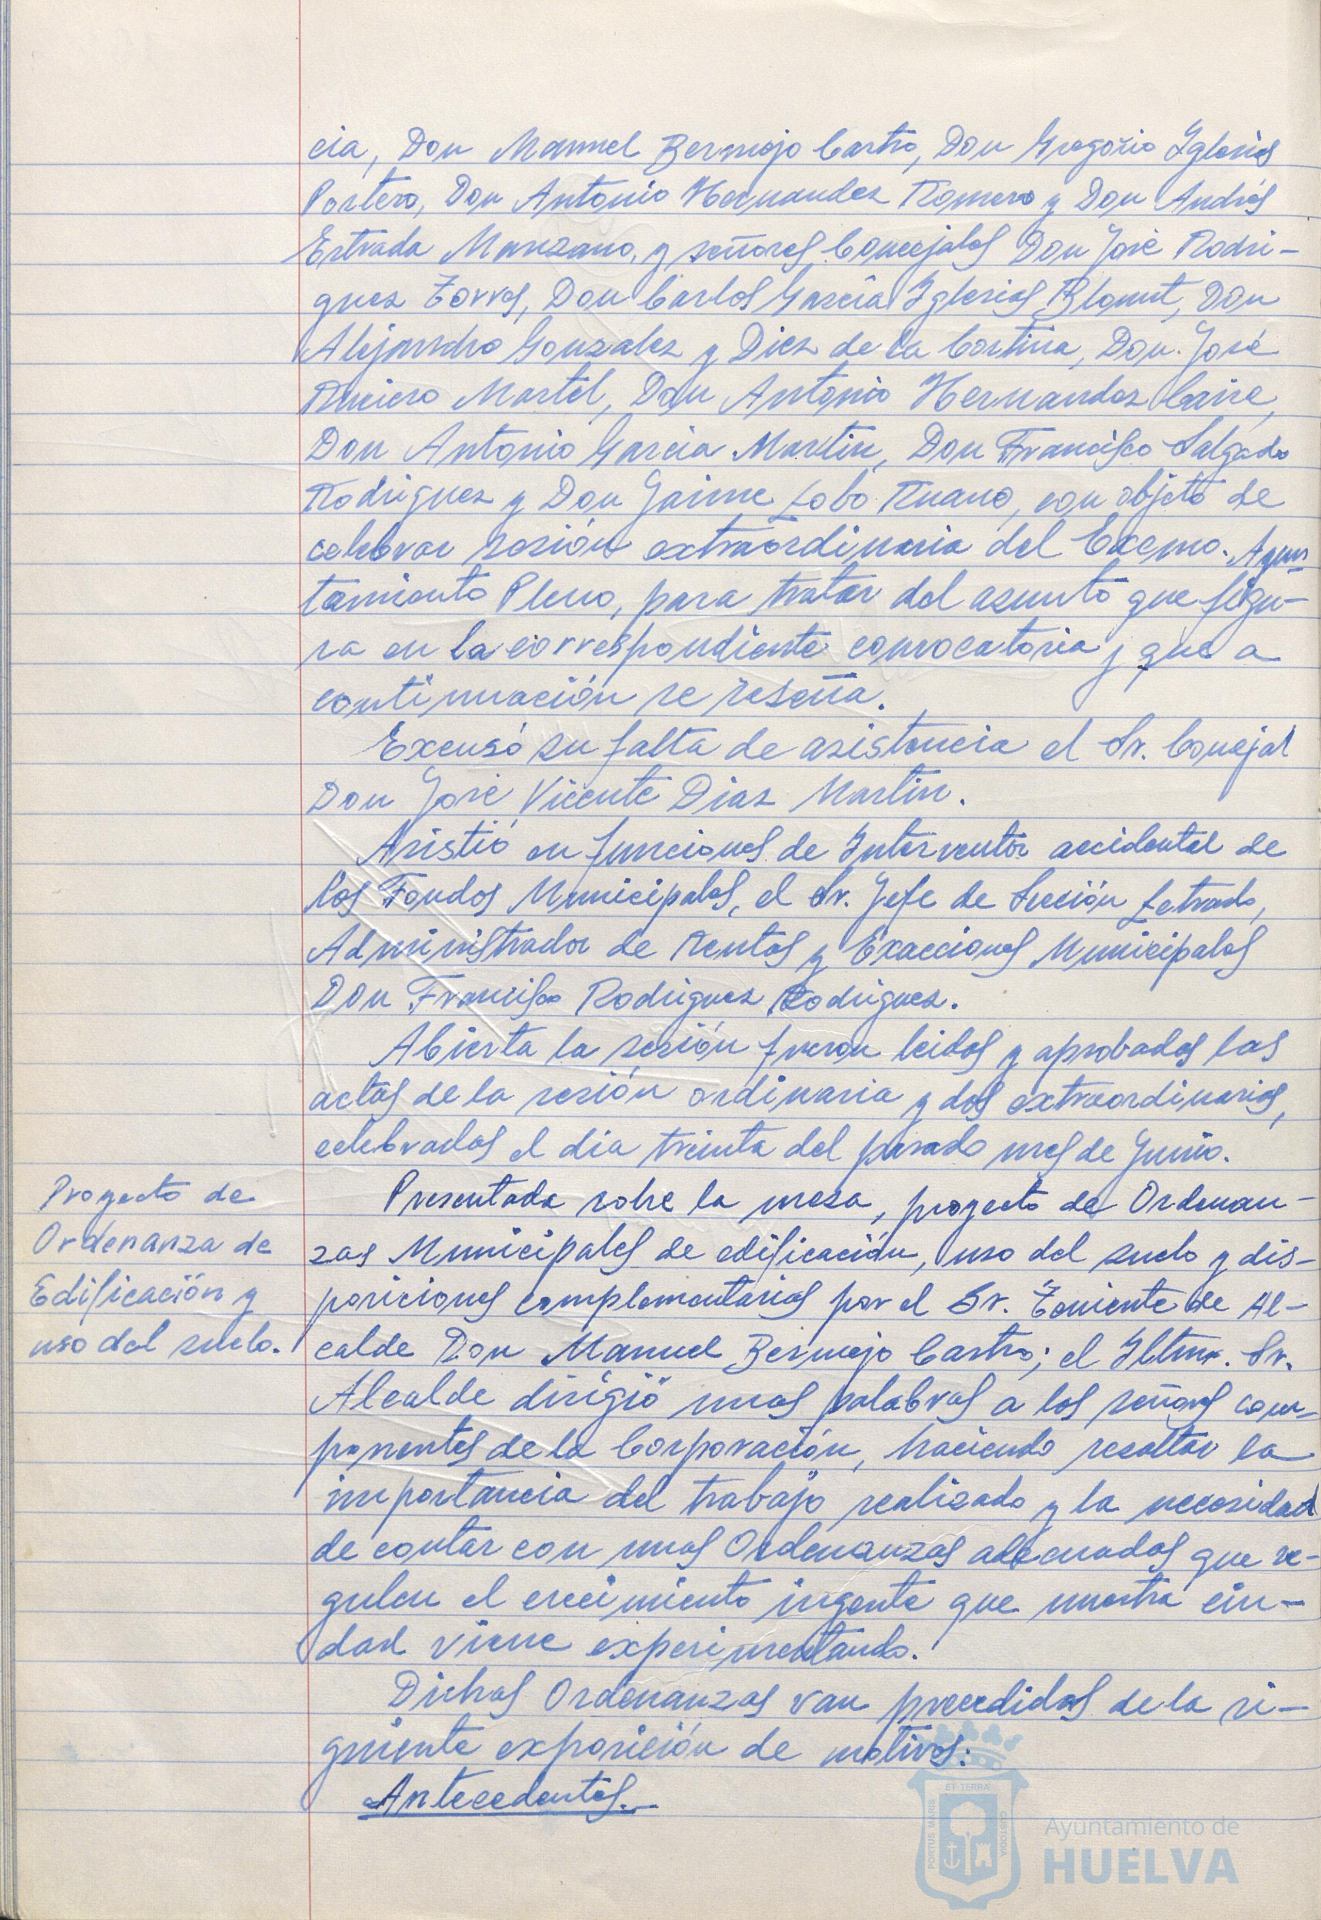 cia, Don Manuel Bermejo Castro, Don Gregorio Iglesias
Portero, Don Antonio Hernandez Romero y Don Andrés
Estrada Manzano, y señores Concejales Don José Rodri-
guez Torres, Don Carlos García Iglesias Blanut, Don
Alejandro Gonzalez y Diez de la Cortina, Don José
Martel, Don Antonio Hernandez Caire,
Don Antonio Garcia Martin, Don Francisco Salgado
Rodriguez y Don Jaime Lobo Ruano, con objeto de
celebrar sesión extraordinaria del Excmo. Ayun
tamiento Pleno, para tratar del asunto que figu-
ra en la correspondiente convocatoria y que a
continuación se reseña.
Excusó su falta de asistencia el Sr. Concejal
Don José Vicente Diaz Martin.
Asistió en funciones de Interventor accidental de
los Fondos Municipales, el Sr. Jefe de Sección Letrado,
Administrador de Rentas y Exacciones Municipales
Don Francisco Rodriguez Rodriguez.
Abierta la sesión fueron leidas y aprobadas las
actas de la sesión ordinaria y dos extraordinarias,
celebradas el dia treinta del pasado mes de Junio.
Proyecto de
Ordenanza de
Edificación y
uso del suelo.
Presentada sobre la mesa, proyecto de Ordenan-
zas Municipales de edificación, uso del suelo y dis-
posiciones complementarias por el Sr. Teniente de Al-
calde Don Manuel Bermejo Castro; el Iltmo. Sr.
Alcalde dirigió unas palabras a los señores com-
ponentes de la Corporación, haciendo resaltar la
importancia del trabajo realizado y la necesidad
de contar con unas Ordenanzas adecuadas que re-
gulen el crecimiento ingente que nuestra ciu-
dad viene experimentando.
Dichas Ordenanzas van precedidas de la si-
guiente exposición de motivos:
Antecedentes.-
ET TERRA
PORTUS MARIS
CUSTODIA
Ayuntamiento de
HUELVA